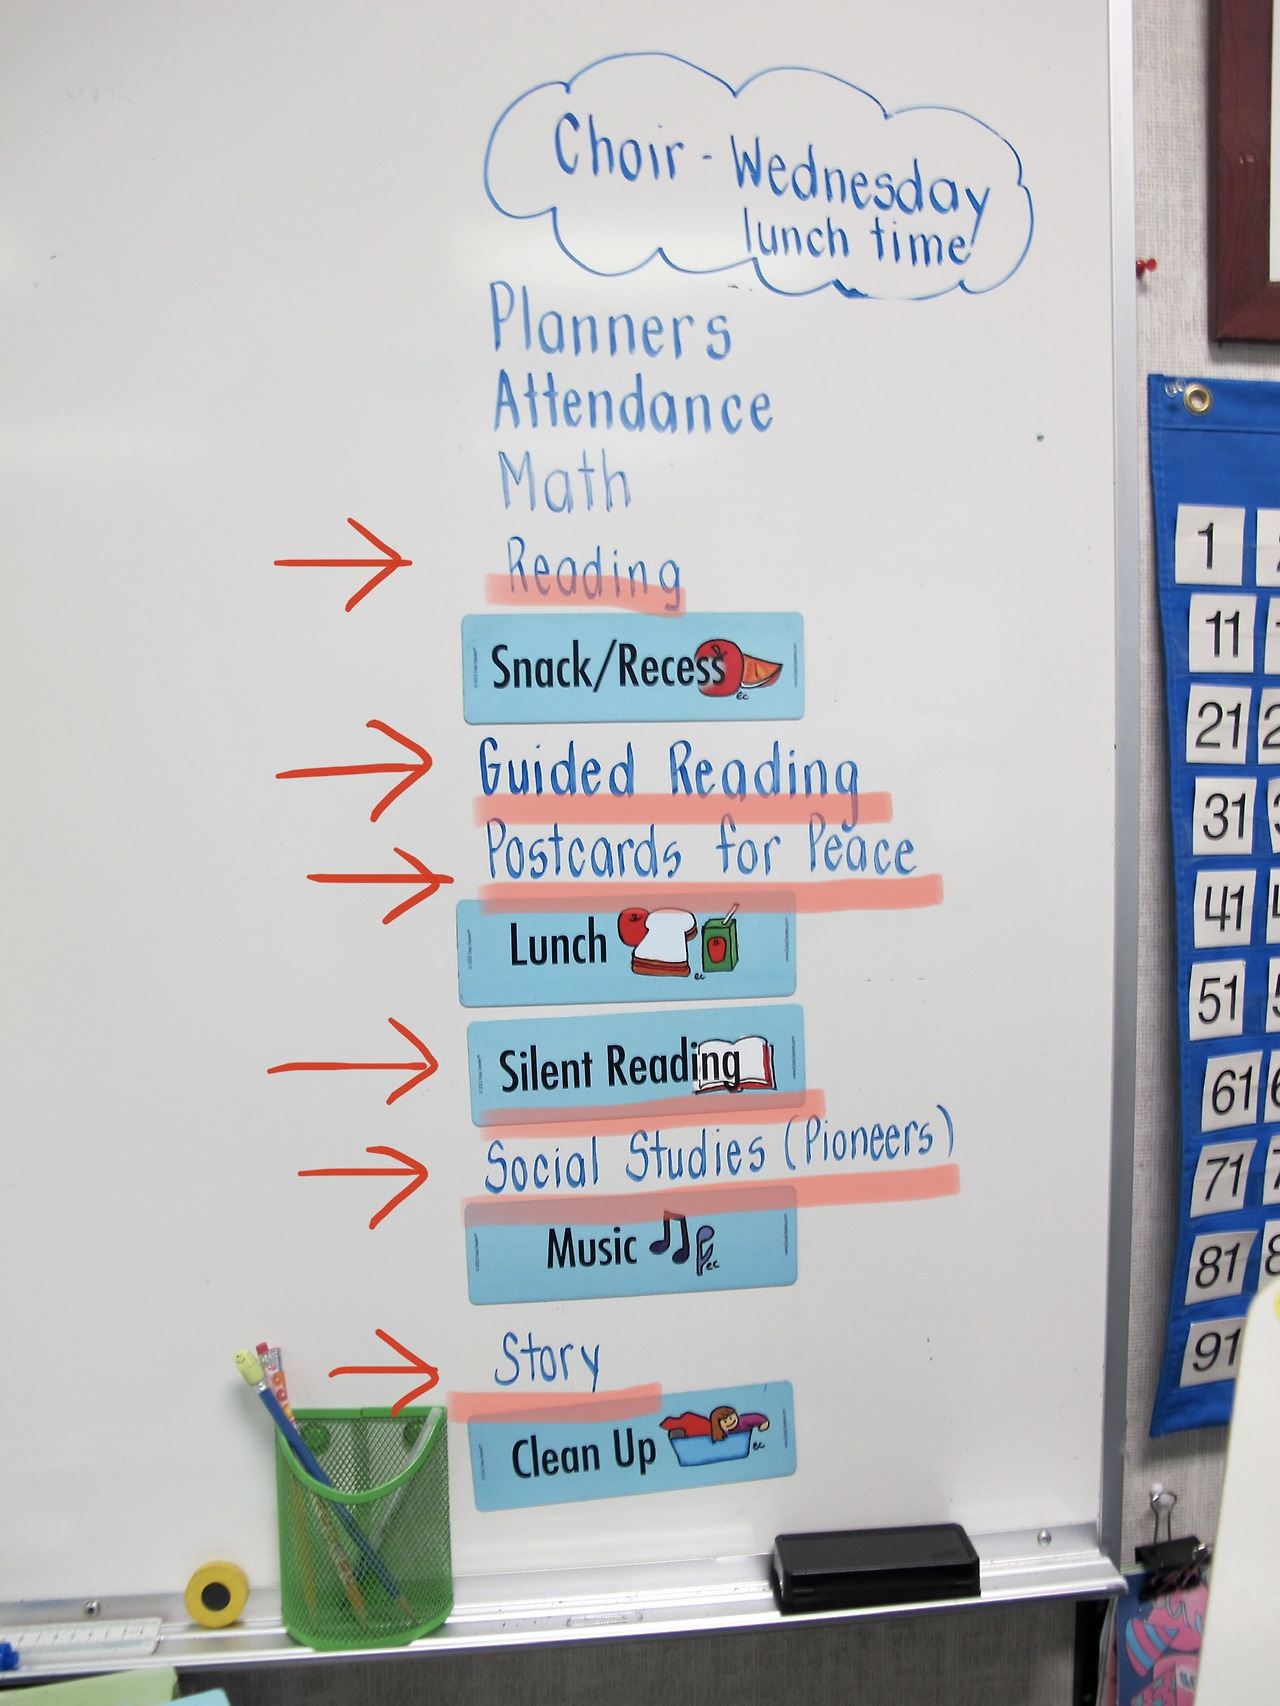 Choir - Wednesday
lunch time
Planners
Attendance
Math
Reading
Snack/Recess
Guided Reading
Postcards for Peace
Lunch
Silent Reading
Social Studies (Pioneers)
Music
Story
Clean Up
1
11
21
31
41
51
61
71
81
91